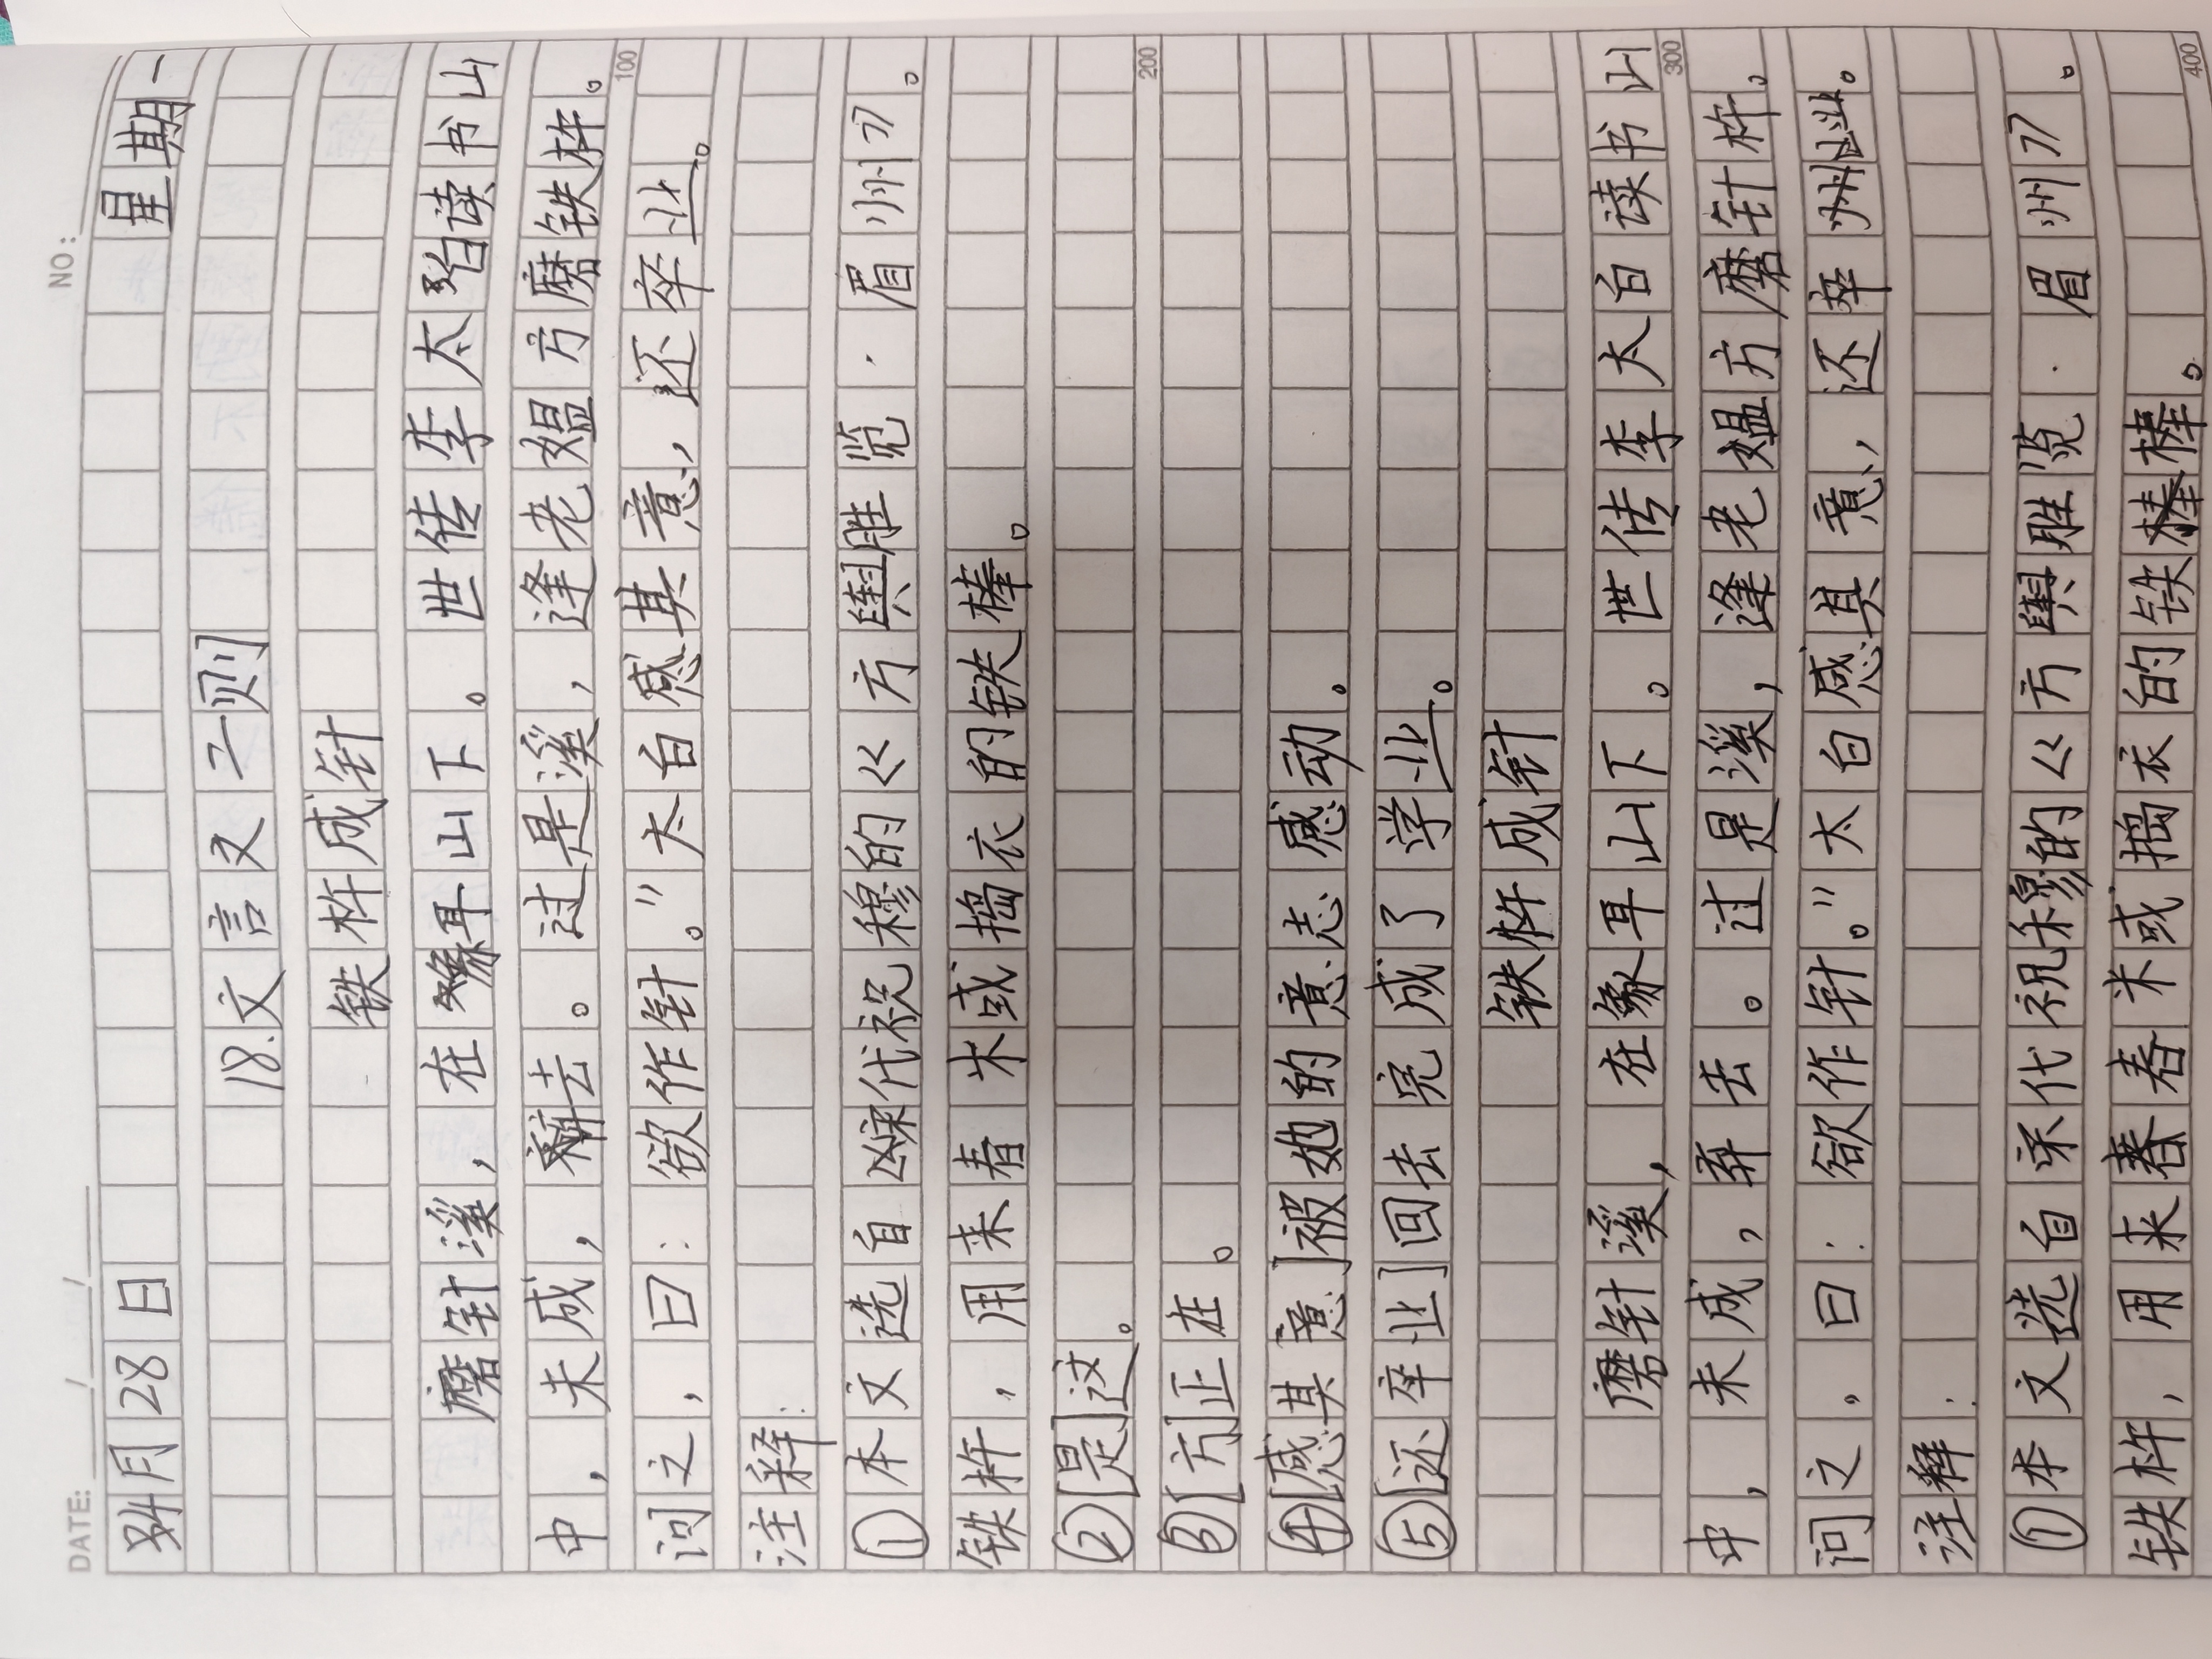 NO:
DATE: / /
4月28日 星期一
18.文言文二则
铁杵成针
磨针溪，在象耳山下。世传李太白读书山
中，未成，弃去。过是溪，逢老媪方磨铁杵。
100
问之，曰：欲作针。”太白感其意，还卒业。
注释：
①本文选自宋代祝穆的《方舆胜览·眉州》。
铁杵，用来舂米或捣衣的铁棒。
②[是]这。
200
③[方]正在。
④[感其意]被她的意志感动。
⑤[还卒业]回去完成了学业。
铁杵成针
磨针溪，在象耳山下。世传李太白读书山
300
中，未成，弃去。过是溪，逢老媪方磨针杵。
问之。曰：欲作针。”太白感其意，还卒业。
注释：
①本文选自宋代祝穆的《方舆胜览·眉州》。
铁杵，用来舂米或捣衣的铁棒。
400